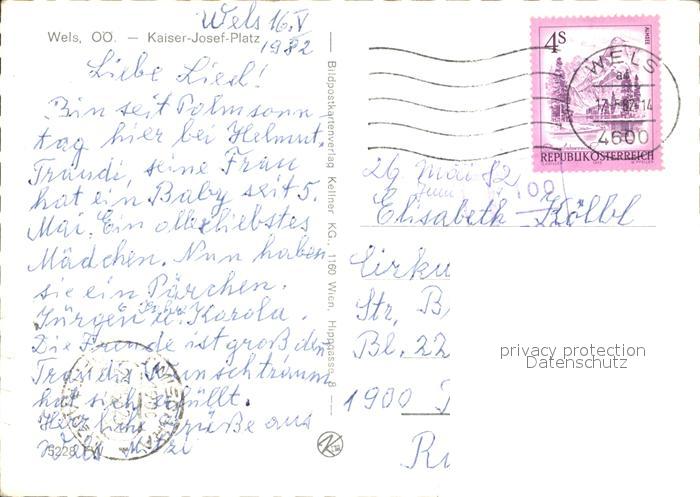 Wels 16. V
1982
Wels, OÖ. — Kaiser-Josef-Platz
Liebe Liesl!
Bin seit Palmsonn-
tag hier bei Helmut.
Traudi, seine Frau
hat ein Baby seit 5.
Mai. Ein allerliebstes
Mädchen. Nun haben
sie ein Pärchen.
Jürgen u. Karola.
Die Freude ist groß denn
Traudis Wunschtraum
hat sich erfüllt.
Herzliche Grüße aus
Wels Mitzi
5228
Bildpostkartenverlag Kellner KG., 1160 Wien, Hippgasse 8
4S
ALMSEE
REPUBLIK ÖSTERREICH
WELS
4600
26 Mai 82
Elisabeth Kölbl
Cirku
Str. B
Bl. 22
1900
privacy protection
Datenschutz